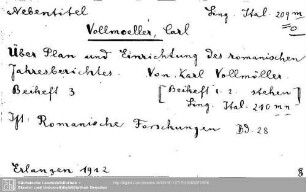 Nebentitel
Ling. Ital. 209 m
=o
Vollmoeller, Carl
Über Plan und Einrichtung des romanischen
Jahresberichtes. Von Karl Vollmöller.
Beiheft 3 [Beiheft 1. 2. stehen]
Ling. Ital. 210 nn
Ist: Romanische Forschungen Bd. 28
Erlangen 1912 8